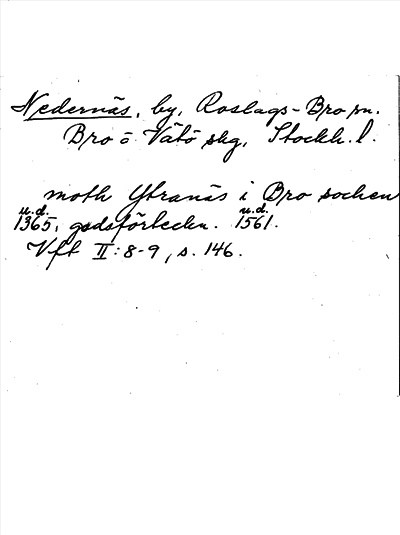 Nedernäs, by, Roslags-Bro sn.
Bro o Vätö skg, Stockh. l.
moth Ytranäs i Bro sochen
u.d. u.d.
1365, godsförteckn. 1561.
Vft II:8-9, s. 146.